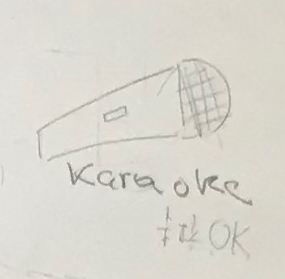 Karaoke
卡拉OK